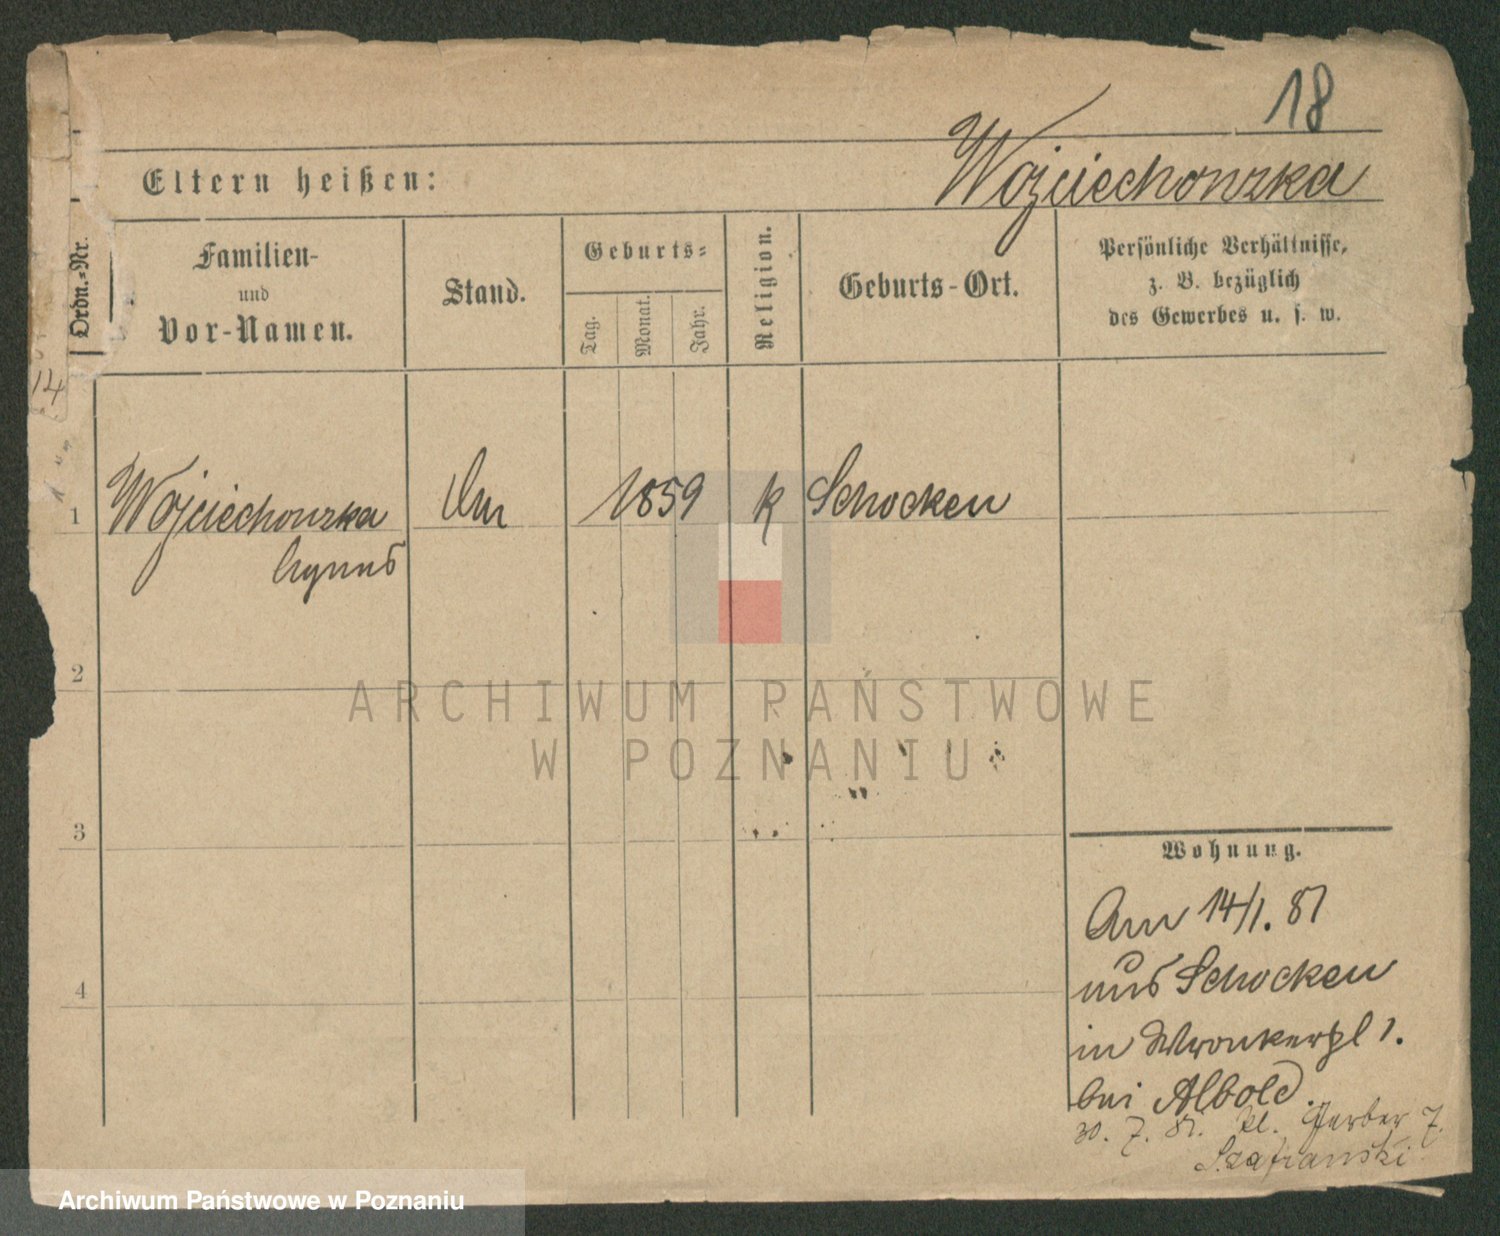 18
Eltern heißen:
Wojciechowska
Ordn.-Nr.
Familien-
und
Vor-Namen.
Stand.
Geburts-
Tag.
Monat.
Jahr.
Religion.
Geburts-Ort.
Persönliche Verhältnisse,
z. B. bezüglich
des Gewerbes u. s. w.
14
1 Wojciechowska 1859 k Schocken
Agnes
2
ARCHIWUM PAŃSTWOWE
W POZNANIU
3
Wohnung.
Am 14/1. 81
aus Schocken
4
in Wronkerpl 1.
bei Albold.
30. 7. 81. kl. Gerber 7.
Szafranski
Archiwum Państwowe w Poznaniu